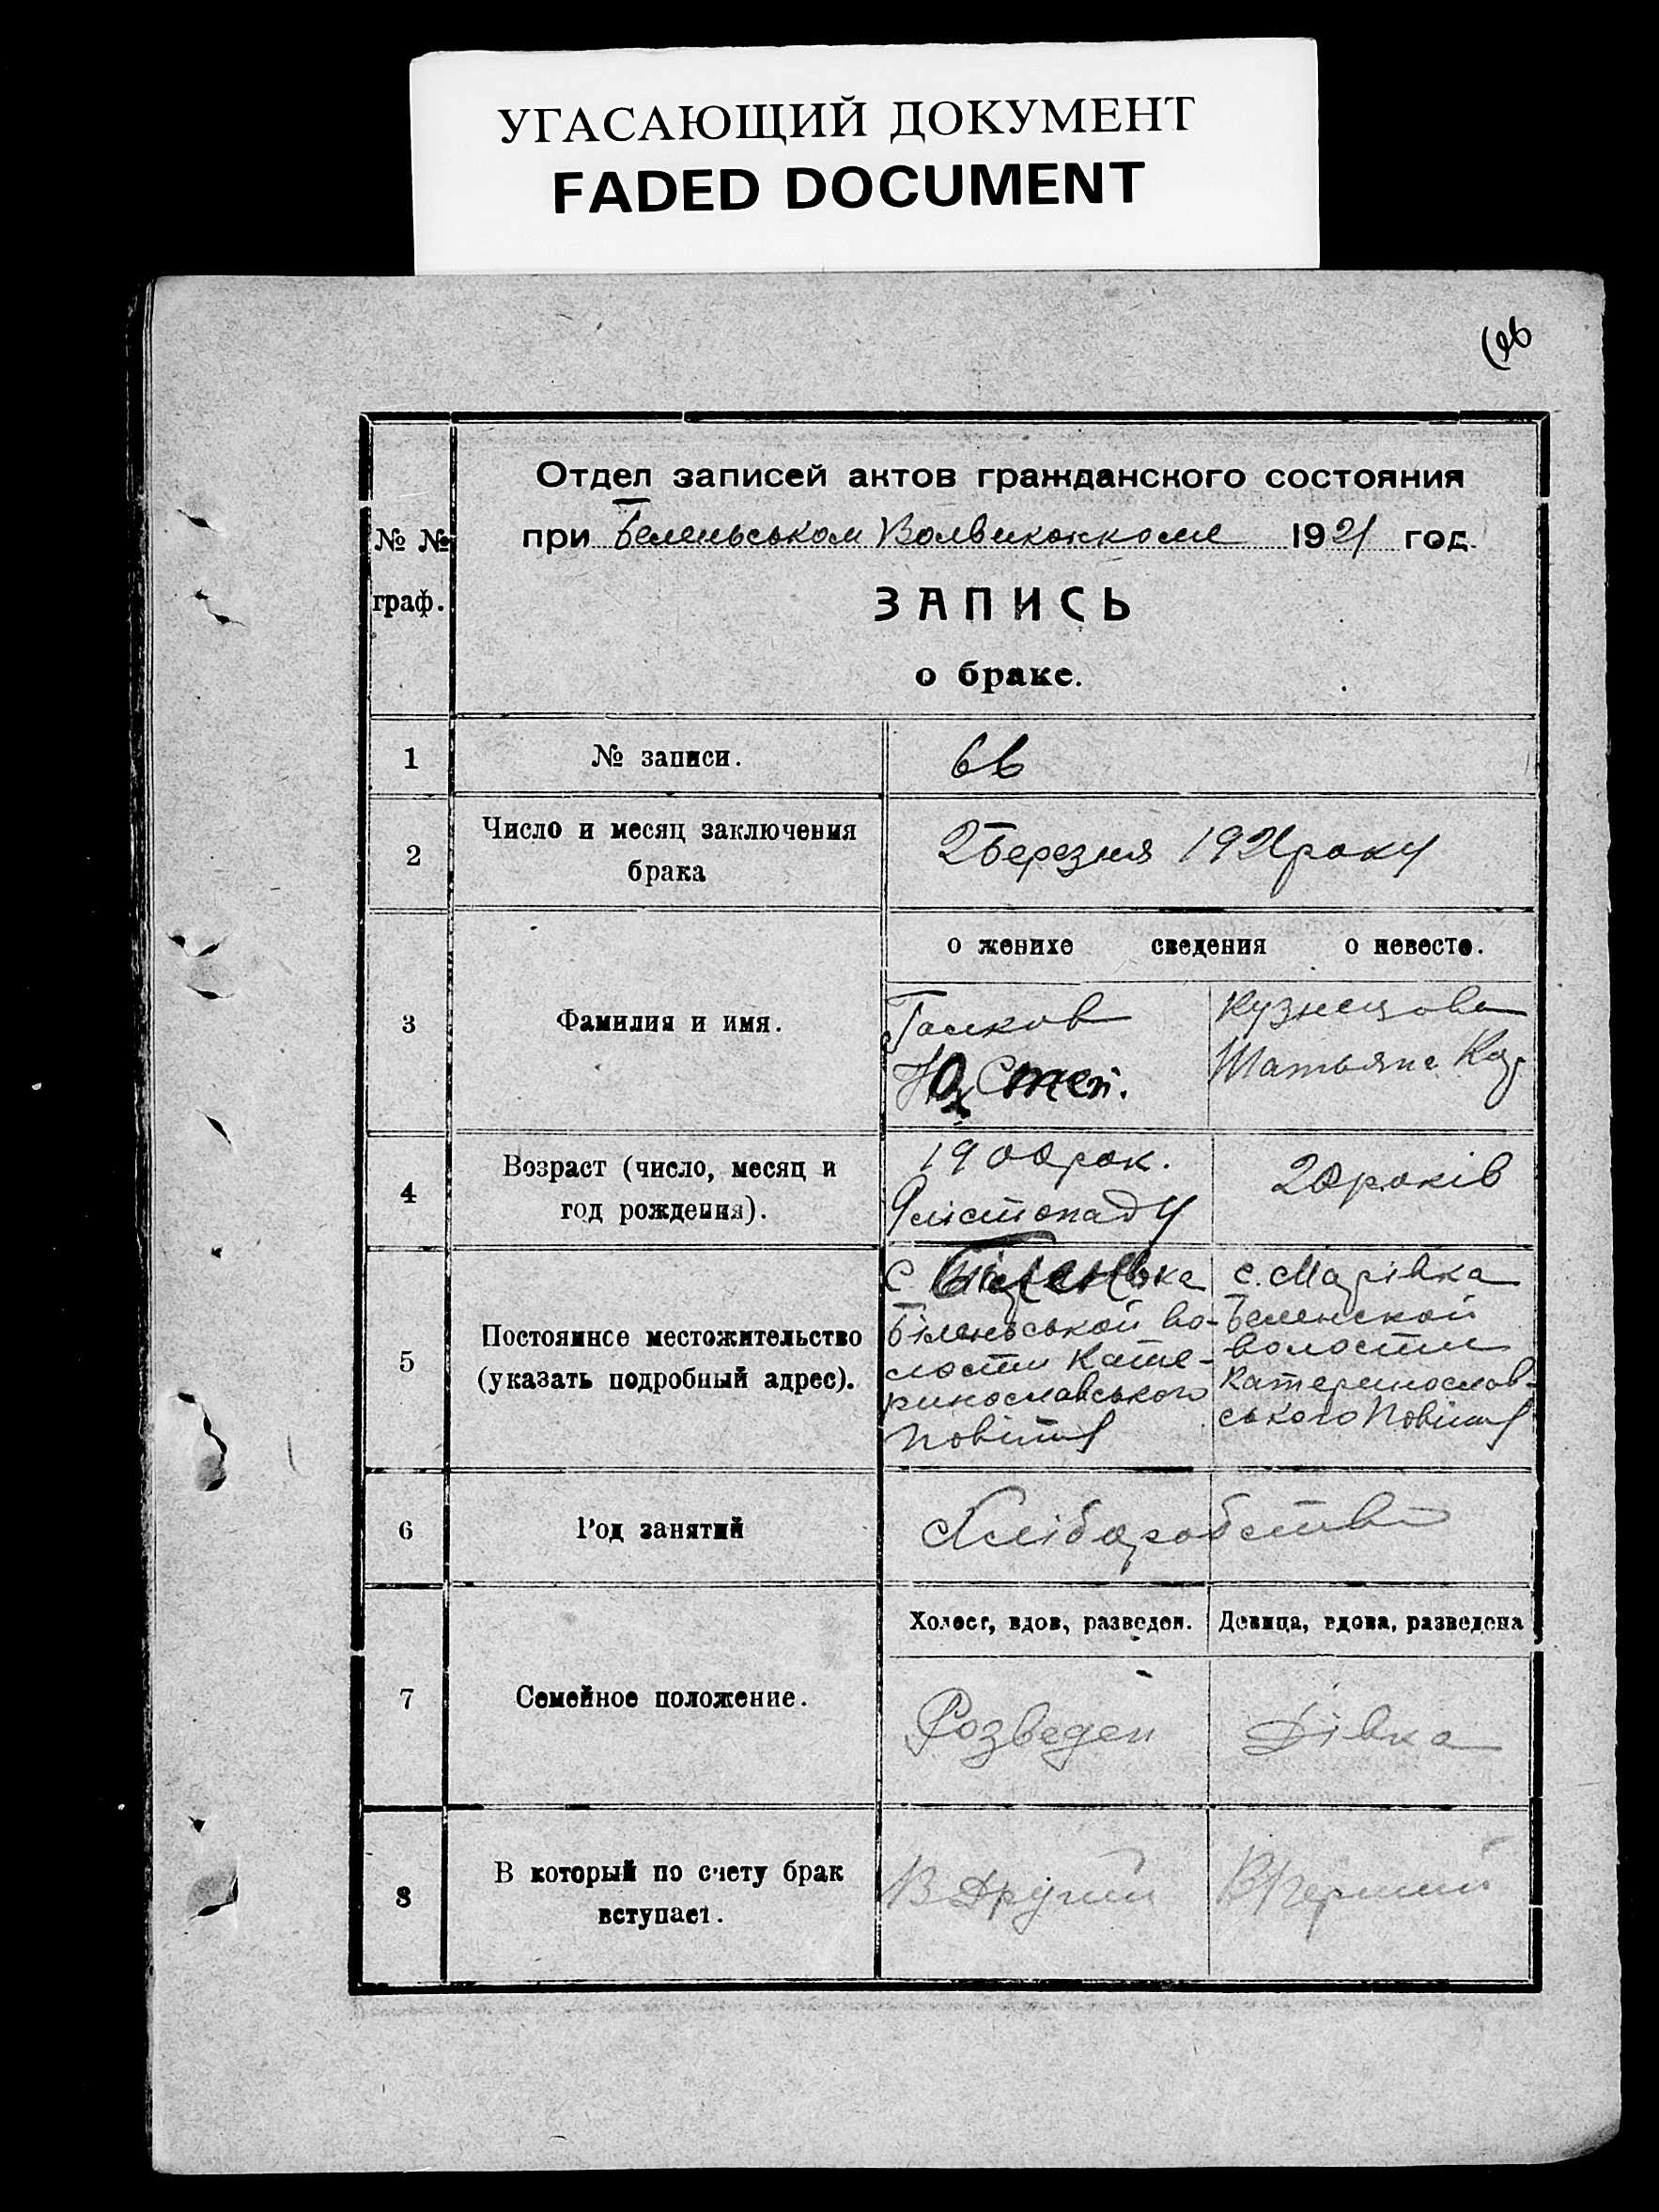 УГАСАЮЩИЙ ДОКУМЕНТ
FADED DOCUMENT
66
№ №
граф.
Отдел записей актов гражданского состояния
при Беленьськом Волвиконкоме 1921 год.
ЗАПИСЬ
о браке.
1
№ записи.
66
2
Число и месяц заключения
брака
2 Березня 1921 року
о женихе сведения о невесте.
3
Фамилия и имя.
Кузнецова
Татьяна
4
Возраст (число, месяц и
год рождения).
1900 рок.
9 листопаду
20 років
5
Постоянное местожительство
(указать подробный адрес).
с. Біленька
Біленьськой во-
лости Кате-
ринославського
повіту
с. Марівка
Беленской
волости
Катеринослав-
ського повіту
6
Род занятий
Хліборобство
7
Семейное положение.
Холост, вдов, разведен.
Девица, вдова, разведена
Розведен
Дівка
8
В который по счету брак
вступает.
В другий
В перший